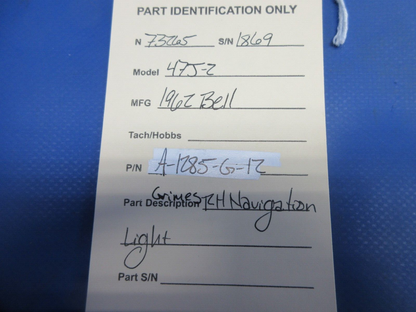 PART IDENTIFICATION ONLY
N 73265 S/N 1869
Model 47J-2
MFG 1962 Bell
Tach/Hobbs
P/N A-1285-G-12
Part Description Grimes RH Navigation
Light
Part S/N